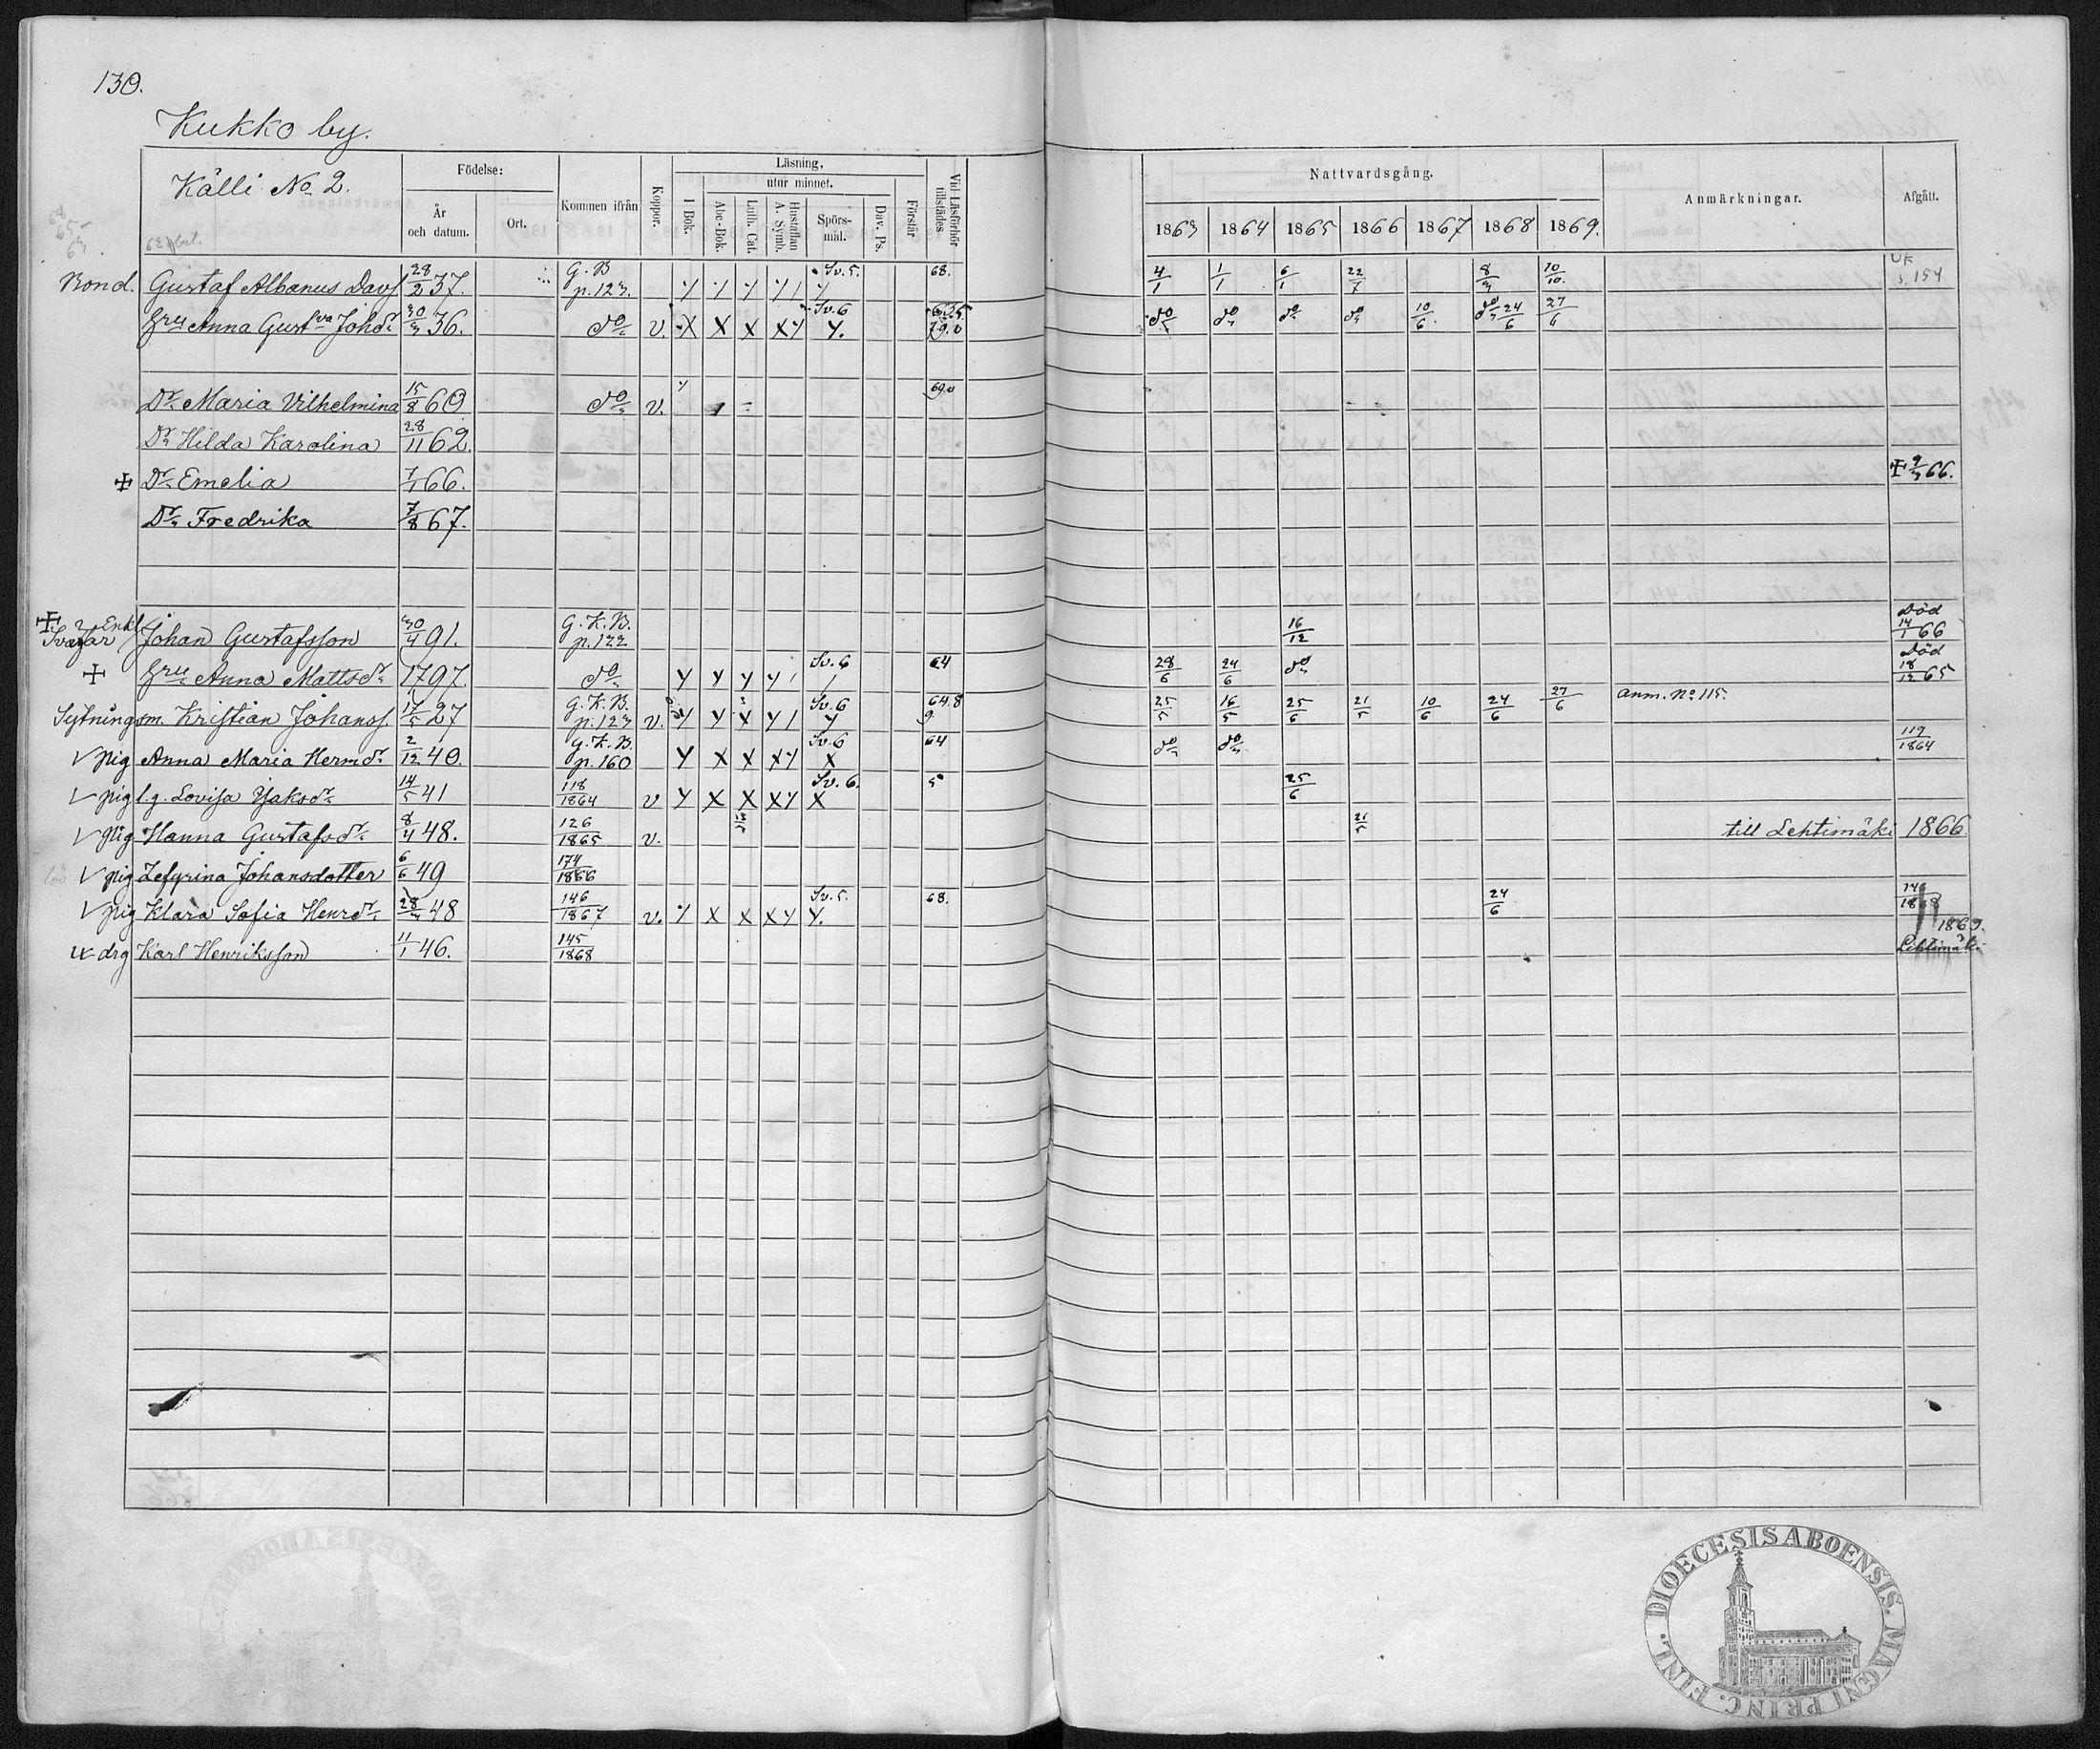 130.
Kukko by.
Källi No 2.
Födelse:
År och datum.
Ort.
Kommen ifrån
Koppor.
Läsning,
utur minnet.
I Bok.
Abc-Bok.
Luth. Cat.
Hustaflan A. Symb.
Spörs-mål.
Dav. Ps.
Förstår
Vid Läsförhör tillstädes
Nattvardsgång.
1863 1864 1865 1866 1867 1868 1869.
Anmärkningar.
Afgått.
Bond. Gustaf Albanus Davs 28/2 37. G.B p.123. Sv.5. 68. 4/1 1/1 6/1 22/7 8/3 10/10. s.154
Hru Anna Gustva Johdr 30/3 36. do v. X X X XY Sv.6 Y. do do do do 10/6. do 24/6 27/6
Dr Maria Vilhelmina 15/8 60 do v. 69.
Dr Hilda Karolina 28/11 62.
Dr Emelia 7/1 66. 9/3 66.
Dr Fredrika 7/8 67.
Enkl. Svärfar Johan Gustafsson 30/4 91. G.K.B. p.122 16/12 Död 14/1 66
Hru Anna Mattsdr 1797. do Y Y Y Y Sv.6 64 28/6 24/6 do Död 18/12 65
Sytningsm. Kristian Johanss. 17/5 27 G.K.B. p.123 v. Y Y X Y Sv.6 Y 64.8 9. 25/5 16/5 25/6 21/5 10/6 24/6 27/6 anm. No 115.
pig Anna Maria Hermdr 2/12 40. G.K.B. p.160 Y X X XY Sv.6 X 64 do do 119/1864
pig l.g. Lovisa Jaksdr 14/5 41 118/1864 v Y X X XY Sv.6. X 5 25/6
pig Hanna Gustafsdr 8/4 48. 126/1865 v. 21/5 till Lehtimäki 1866
pig Zefyrina Johansdotter 6/6 49 174/1866
pig Klara Sofia Henrdr 28/3 48 146/1867 v. X X XY Sv.5. Y. 68. 24/6 146/1868
drg Karl Henriksson 11/1 46. 145/1868 1869. Lehtimäki
DIOECESIS ABOENSIS. MAGNI PRINC. FINL.